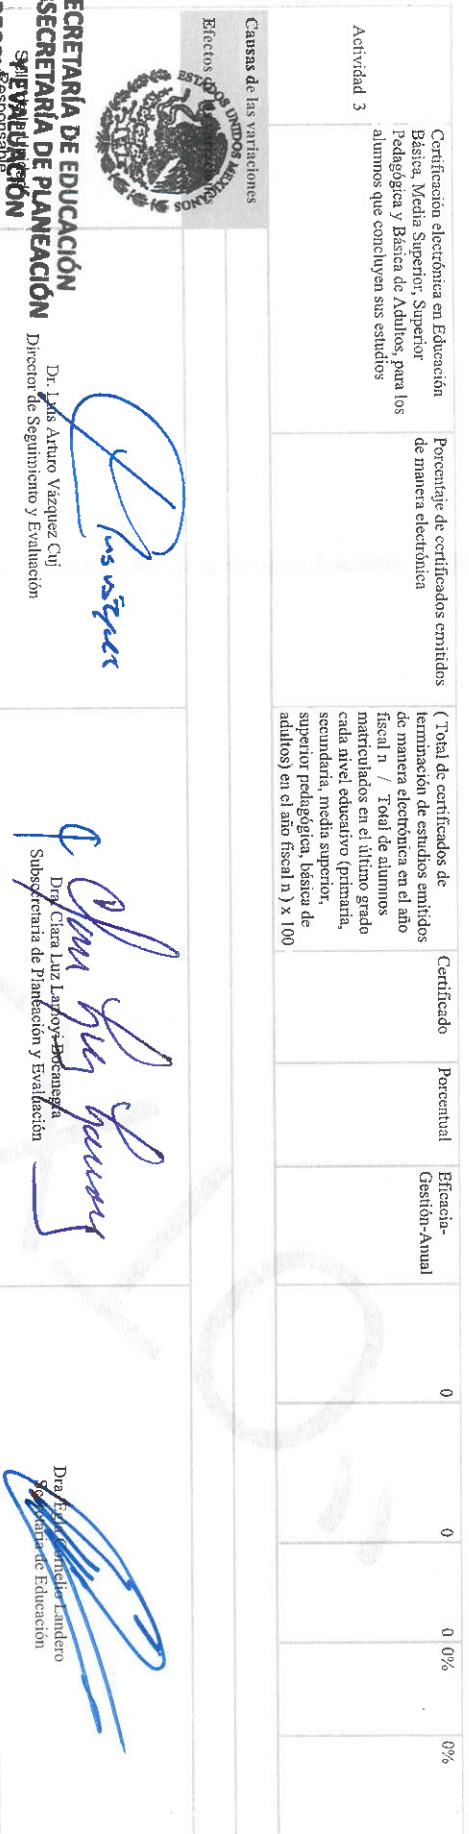 Actividad 3
Certificación electrónica en Educación
Básica, Media Superior, Superior
Pedagógica y Básica de Adultos, para los
alumnos que concluyen sus estudios
Porcentaje de certificados emitidos
de manera electrónica
( Total de certificados de
terminación de estudios emitidos
de manera electrónica en el año
fiscal n / Total de alumnos
matriculados en el último grado
cada nivel educativo (primaria,
secundaria, media superior,
superior pedagógica, básica de
adultos) en el año fiscal n ) x 100
Certificado
Porcentual
Eficacia-
Gestión-Anual
0
0
0
0%
0%
Causas de las variaciones
Efectos
ESTADOS UNIDOS MEXICANOS
ECRETARÍA DE EDUCACIÓN
SECRETARÍA DE PLANEACIÓN
Y EVALUACIÓN
Responsable
Luis Vázquez
Dr. Luis Arturo Vázquez Cuj
Director de Seguimiento y Evaluación
Clara Luz Lamoyi
Dra. Clara Luz Lamoyi Bocanegra
Subsecretaria de Planeación y Evaluación
Dra. Egla Cornelio Landero
Secretaria de Educación